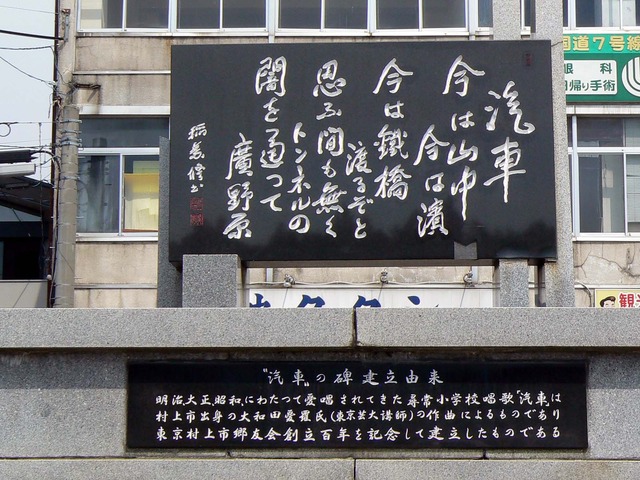 汽車
今は山中
今は濱
今は鐵橋
渡るぞと
思ふ間も無く
トンネルの
闇を通つて
廣野原
稲葉修書
"汽車"の碑 建立由来
明治、大正、昭和、にわたつて愛唱されてきた尋常小学校唱歌「汽車」は
村上市出身の大和田愛羅氏(東京芸大講師)の作曲によるものであり
東京村上市郷友会創立百年を記念して建立したものである
国道7号線
眼 科
日帰り手術
観光